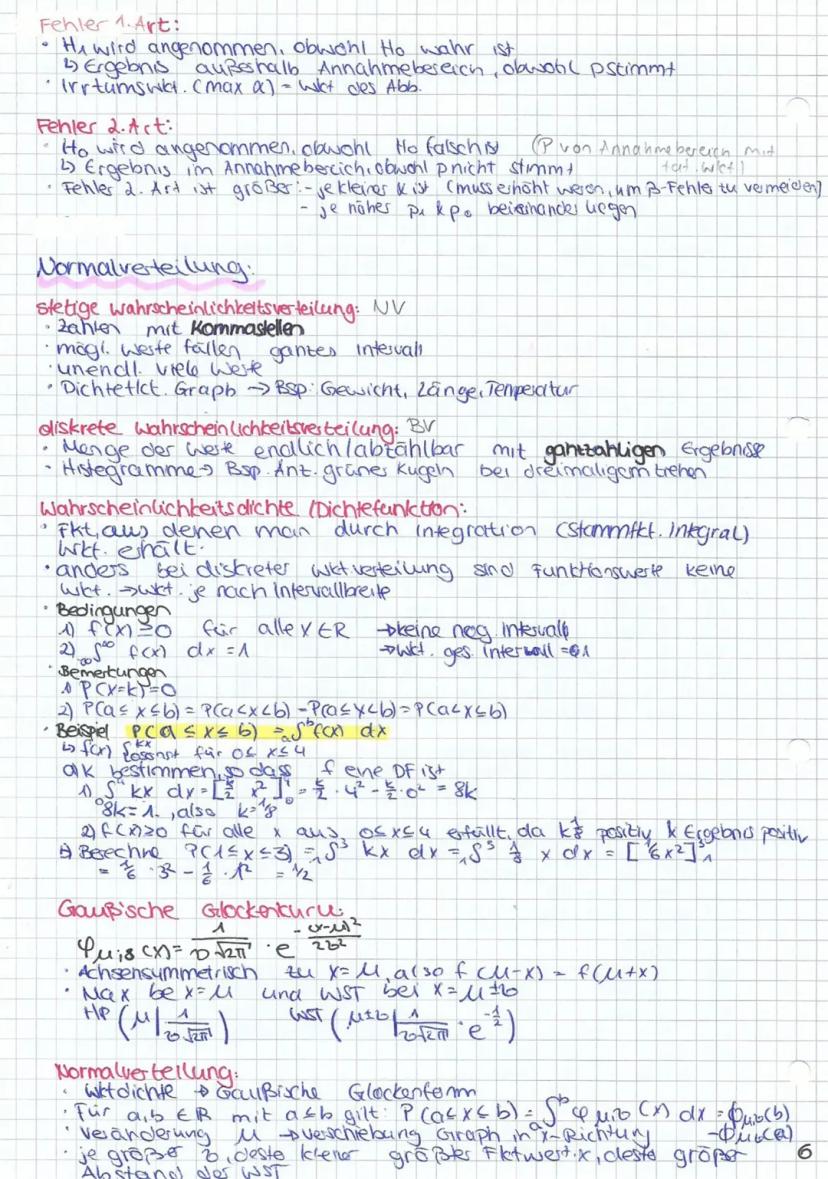 Fehler 1. Art:
• H₁ wird angenommen, obwohl H₀ wahr ist
↳ Ergebnis außerhalb Annahmebereich, obwohl p stimmt
• Irrtumswkt. (max α) = Wkt des Abb.
Fehler 2. Art:
• H₀ wird angenommen, obwohl H₀ falsch ist (P von Annahmebereich mit tat. Wkt)
↳ Ergebnis im Annahmebereich, obwohl p nicht stimmt
• Fehler 2. Art ist größer: - je kleiner k ist (muss erhöht weren, um β-Fehler zu vermeiden)
- je näher p₁ & p₀ beieinander liegen
Normalverteilung:
stetige Wahrscheinlichkeitsverteilung: NV
• Zahlen mit Kommastellen
• mögl. Werte füllen ganzes Intervall
• unendl. viele Werte
• Dichtefkt. Graph → Bsp: Gewicht, Länge, Temperatur
diskrete Wahrscheinlichkeitsverteilung: BV
• Menge der Werte endlich/abzählbar mit ganzzahligen Ergebnisse
• Histogramme → Bsp. Anz. grüner Kugeln bei dreimaligem ziehen
Wahrscheinlichkeitsdichte / Dichtefunktion:
• Fkt, aus denen man durch Integration (Stammfkt. Integral)
Wkt. erhält.
• anders bei diskreter Wktverteilung sind Funktionswerte keine
Wkt. → Wkt. je nach Intervallbreite
• Bedingungen
1) f(x) ≥ 0 für alle x ∈ R → keine neg. Intervalle
2) ₋∞∫^∞ f(x) dx = 1 → Wkt. ges. Intervall = 1
• Bemerkungen
1) P(X=k) = 0
2) P(a ≤ x ≤ b) = P(a < x < b) = P(a ≤ x < b) = P(a < x ≤ b)
• Beispiel P(a ≤ x ≤ b) = ₐ∫ᵇ f(x) dx
↳ f(x) { kx sonst für 0 ≤ x ≤ 4
a) k bestimmen, so dass f eine DF ist
1) ₀∫⁴ kx dx = [k/2 x²]⁴₀ = k/2 · 4² - k/2 · 0² = 8k
8k = 1, also k = 1/8
2) f(x) ≥ 0 für alle x aus 0 ≤ x ≤ 4 erfüllt, da k 1/8 positiv & Ergebnis positiv
b) Berechne P(1 ≤ x ≤ 3) = ₁∫³ kx dx = ₁∫³ 1/8 x dx = [1/6 x²]³₁
= 1/6 · 3² - 1/6 · 1² = 1/2
Gauß'sche Glockenkurve:
φμ;σ (x) = 1/(σ√2π) · e^(-(x-μ)²/2σ²)
• Achsensymmetrisch zu x = μ, also f(μ-x) = f(μ+x)
• Max be x = μ und WST bei x = μ ± σ
HP (μ | 1/(σ√2π)) WST (μ±σ | 1/(σ√2π) · e^(-1/2))
Normalverteilung:
• Wktdichte → Gaußische Glockenform
• Für a,b ∈ R mit a ≤ b gilt: P(a ≤ x ≤ b) = ₐ∫ᵇ φμ;σ (x) dx = ϕμ;σ(b) - ϕμ;σ(a)
• Veränderung μ → Verschiebung Graph in x-Richtung
• je größer σ, deste kleiner größter Fktwert x, deste größer
Abstand der WST
6